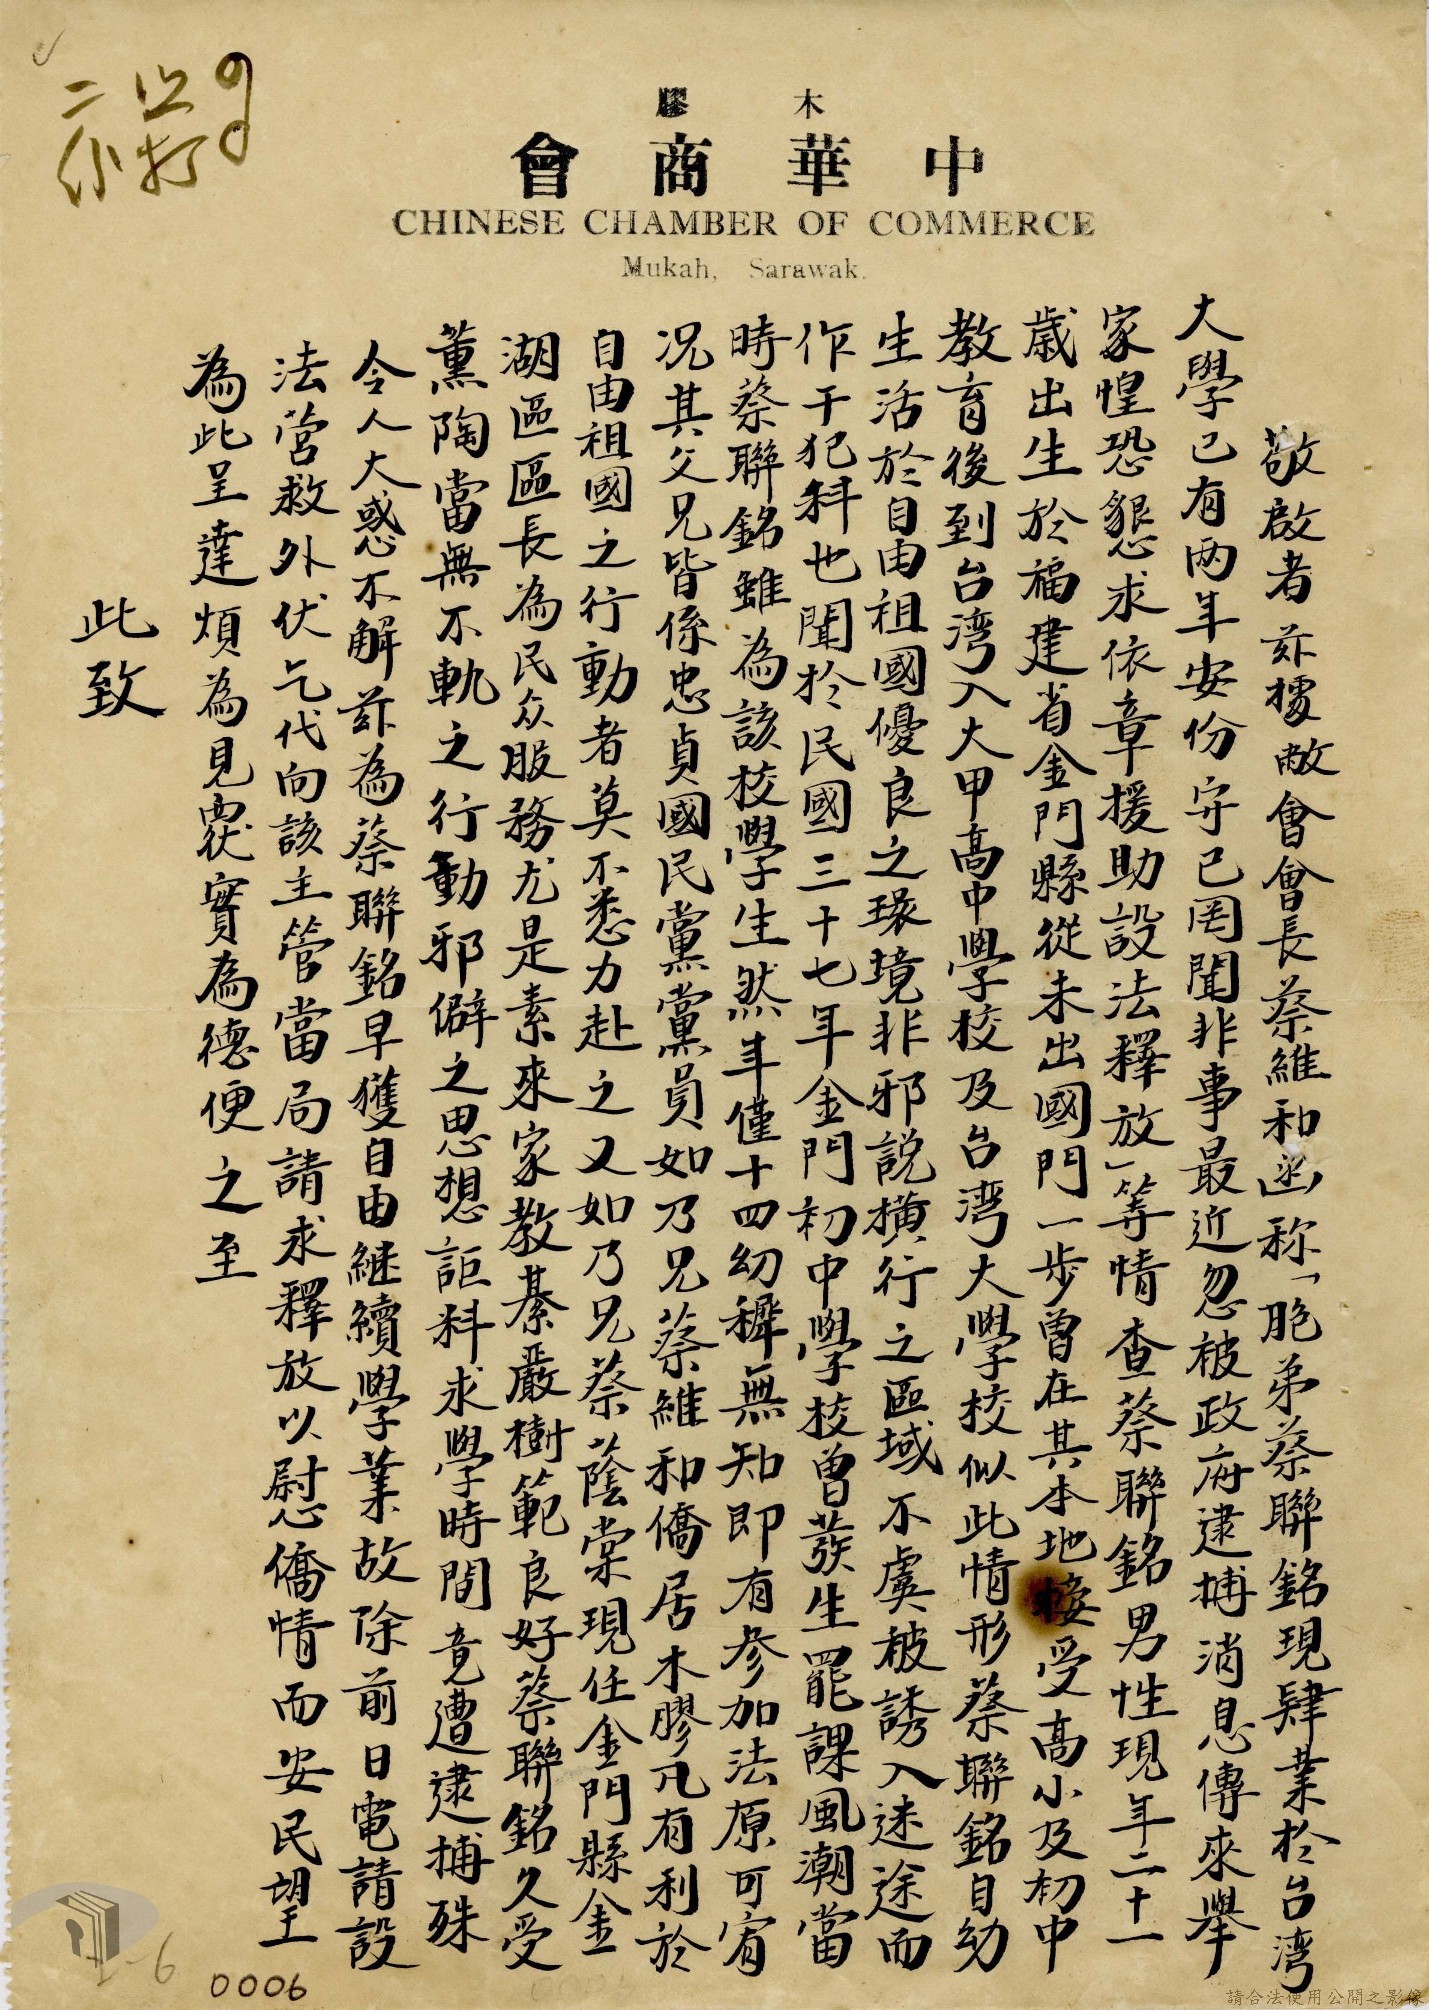 木膠
中華商會
CHINESE CHAMBER OF COMMERCE
Mukah, Sarawak.
敬啟者茲據敝會會長蔡維和函称「胞弟蔡聯銘現肄業於台湾
大學已有两年安份守已罔聞非事最近忽被政府逮捕消息傳來舉
家惶恐懇求依章援助設法釋放」等情查蔡聯銘男性現年二十一
歳出生於福建省金門縣從未出國門一步曾在其本地接受高小及初中
教育後到台湾入大甲高中學校及台湾大學校似此情形蔡聯銘自幼
生活於自由祖國優良之環境非邪說橫行之區域不虞被誘入迷途而
作干犯科也聞於民國三十七年金門初中學校曾發生罷課風潮當
時蔡聯銘雖為該校學生然年僅十四幼穉無知即有參加法原可宥
况其父兄皆係忠貞國民黨黨員如乃兄蔡維和僑居木膠凡有利於
自由祖國之行動者莫不悉力赴之又如乃兄蔡蔭棠現任金門縣金
湖區區長為民众服務尤是素來家教綦嚴樹範良好蔡聯銘久受
薰陶當無不軌之行動邪僻之思想詎料求學時間竟遭逮捕殊
令人大惑不解茲為蔡聯銘早獲自由継續學業故除前日電請設
法营救外伏乞代向該主管當局請求釋放以慰僑情而安民望
為此呈達煩為見覆實為德便之至
此致
0006
1-6
請合法使用公開之影像